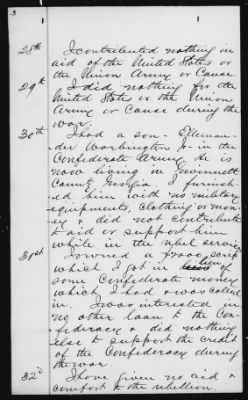 3
1
28th I contributed nothing in
aid of the United States or
the Union Army or Cause.
29th I did nothing for the
United States or the Union
Army or Cause during the
war.
30th I had a son - Alexan-
der Worthington Jr in the
Confederate Army. He is
now living in Gwinnett
County Georgia. I furnish-
ed him with no military
equipments, clothing or mon-
ey & did not contribute
to aid or support him
while in the rebel service
31st I owned a $2000 scrip
which I got in lieu of
some Confederate money
which I had & was called
in. I was interested in
no other loan to the Con-
federacy & did nothing
else to support the credit
of the Confederacy during
the war.
32d I have given no aid &
comfort to the rebellion.